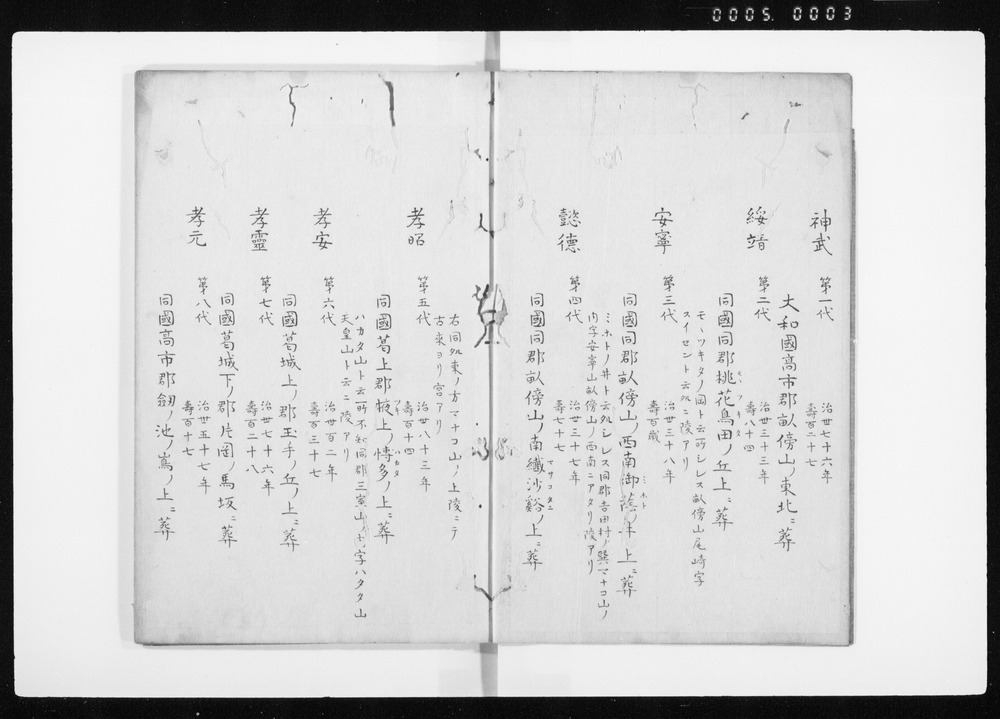 0005. 0003
神武 第一代 治世七十六年
壽百二十七
大和國高市郡畝傍山ノ東北ニ葬
綏靖 第二代 治世三十三年
壽八十四
同國同郡桃花鳥田ノ丘上ニ葬
モヽツキタノ岡ト云所シレス畝傍山尾崎字
スイセント云処ニ陵アリ
安寧 第三代 治世三十八年
壽百歳
同國同郡畝傍山ノ西南御蔭ノ井上ニ葬
ミホト
ミホトノ井ト云処シレス同郡吉田村ノ巽マナコ山ノ
内字安寧山畝傍山ノ西南ニアタリ陵アリ
懿德 第四代 治世三十七年
壽七十七
同國同郡畝傍山ノ南纖沙谿ノ上ニ葬
マサコタニ
右同処東ノ方マナコ山ノ上陵ニテ
古来ヨリ宮アリ
孝昭 第五代 治世八十三年
壽百十四
同國葛上郡掖上ノ博多ノ上ニ葬
ワキ ハカタ
ハカタ山ト云所不知同郡三室山ノ小字ハタタ山
天皇山ト云ニ陵アリ
孝安 第六代 治世百二年
壽百三十七
同國葛城上ノ郡玉手ノ丘ノ上ニ葬
孝靈 第七代 治世七十六年
壽百二十八
同國葛城下ノ郡片岡ノ馬坂ニ葬
孝元 第八代 治世五十七年
壽百十七
同國高市郡劔ノ池ノ嶌ノ上ニ葬